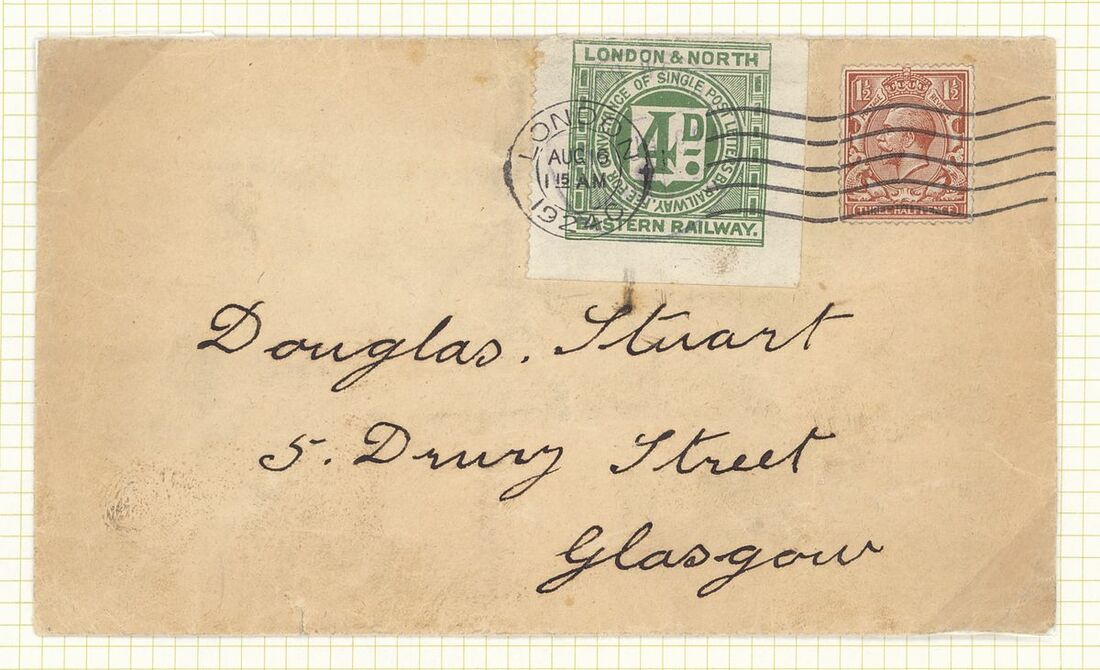 LONDON & NORTH
FEE FOR CONVEYANCE OF SINGLE POST LETTERS BY RAILWAY.
4D.
EASTERN RAILWAY.
LONDON
AUG 16
1 15 AM
1½ 1½
POSTAGE REVENUE
THREE HALFPENCE
Douglas. Stuart
5. Drury Street
Glasgow